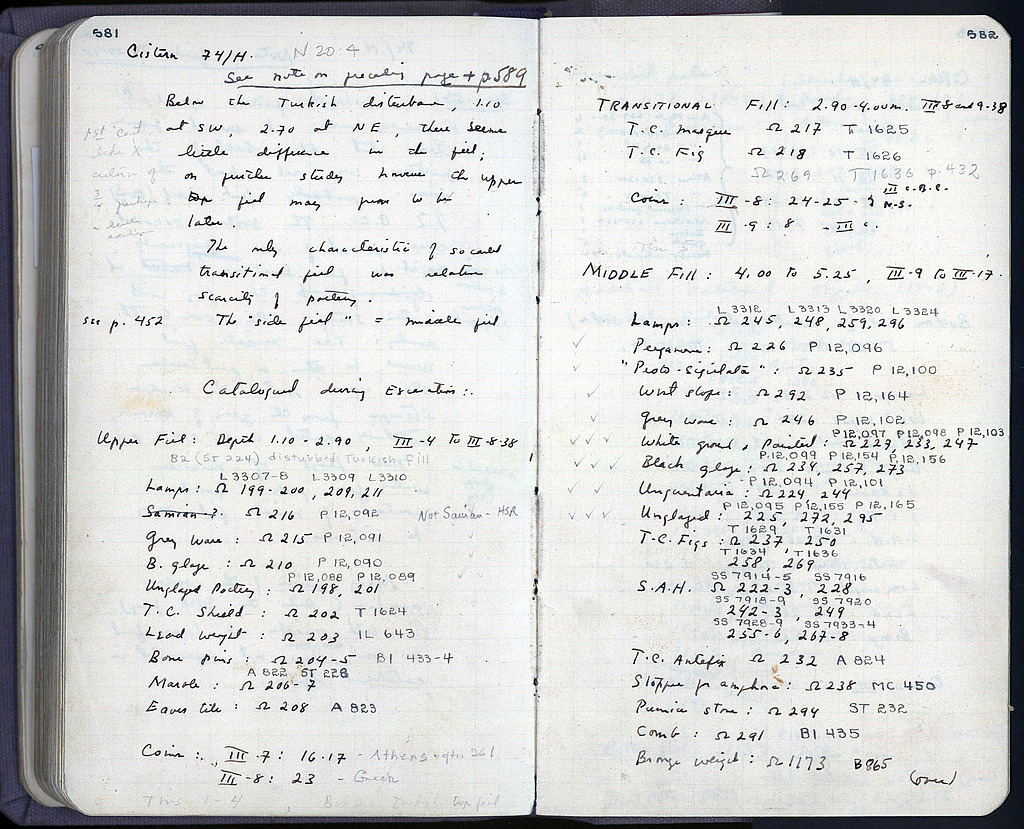 581
Cistern 74/H N 20:4
See note on preceding page + p589
Below the Turkish disturbance, 1.10
at SW, 2.70 at NE, there seems
little difference in the fill;
on further study however the upper
fill may prove to be
later.
The only characteristic of so called
transitional fill was relative
scarcity of pottery.
see p. 452 The "side fill" = middle fill
Catalogued during Excavation:
Upper Fill: Depth 1.10 - 2.90, III-4 to III-8.38
82 (ST 224) disturbed Turkish fill
L3307-8 L3309 L3310
Lamps: Ω 199-200, 209, 211
Samian?: Ω 216 P 12,092 Not Samian - HSR
Grey Ware: Ω 215 P 12,091
B. glaze: Ω 210 P 12,090
P 12,088 P 12,089
Unglazed Pottery: Ω 198, 201
T.C. Shield: Ω 202 T 1624
Lead weight: Ω 203 IL 643
Bone pins: Ω 204-5 BI 433-4
A 822 ST 228
Marble: Ω 206-7
Eaves tile: Ω 208 A 823
Coins: III-7: 16-17 - Athens
III-8: 23 - Greek
582
TRANSITIONAL Fill: 2.90-4.00 m. III-8 and 9-38
T.C. masque Ω 217 T 1625
T.C. Fig Ω 218 T 1626
Ω 269 T 1636 p. 432
Coins: III-8: 24-25 - III c. B.C.
N.S.
III-9: 8 - III c.
MIDDLE Fill: 4.00 to 5.25, III-9 to III-17.
L 3312 L 3313 L 3320 L 3324
Lamps: Ω 245, 248, 259, 296
Pergamene: Ω 226 P 12,096
"Proto-Sigillata": Ω 235 P 12,100
West slope: Ω 292 P 12,164
Grey ware: Ω 246 P 12,102
P 12,097 P 12,098 P 12,103
White ground, painted: Ω 227, 233, 247
P 12,099 P 12,154 P 12,156
Black glaze: Ω 234, 257, 273
P 12,094 P 12,101
Unguentaria: Ω 224, 244
P 12,095 P 12,155 P 12,165
Unglazed: 225, 272, 295
T 1629 T 1631
T.C. Figs: Ω 237, 250
T 1634, T 1636
258, 269
SS 7914-5 SS 7916
S.A.H. Ω 222-3, 228
SS 7918-9 SS 7920
242-3, 249
SS 7928-9 SS 7933-4
255-6, 267-8
T.C. Antefix Ω 232 A 824
Stopper for amphora: Ω 238 MC 450
Pumice stone: Ω 294 ST 232
Comb: Ω 291 BI 435
Bronze weight: Ω 1173 B 865
(over)